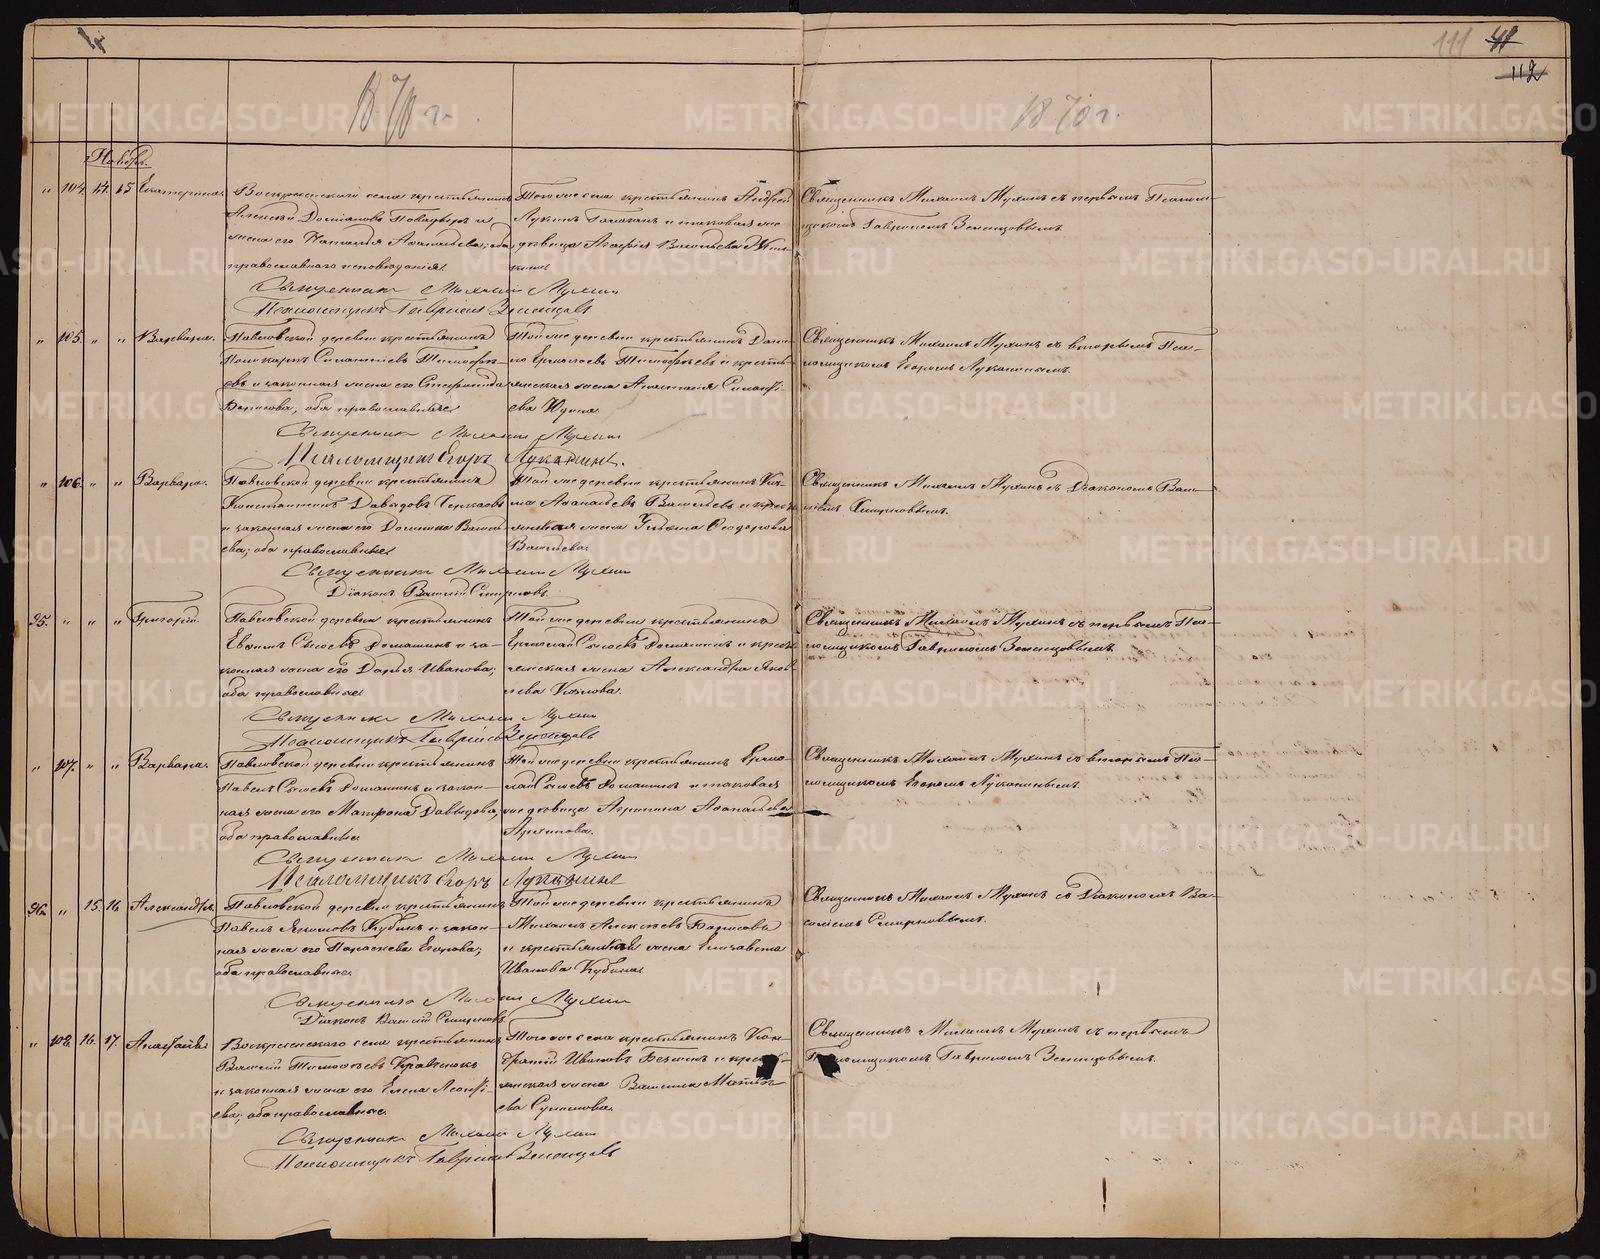 111
112
1870 г.
1870 г.
Ноябрь.
" 104. 14. 15 Екатерина.
Воскресенскаго села крестьянинъ
Алексѣй
жена его Наталья Аѳанасьева; оба
православнаго исповѣданія.
Того же села крестьянинъ Андрей
Лукинъ и таковая же
вдовица Агафія Васильева
Священникъ Михаилъ Мухинъ съ первымъ Псалом-
щикомъ Гавріиломъ Зеленцовымъ.
Священникъ Михаилъ Мухинъ
Псаломщикъ Гавріилъ Зеленцовъ
" 105. " " Варвара.
Павловской деревни крестьянинъ
Поликарпъ Силантьевъ Тимофѣ-
евъ и законная жена его Степанида
Борисова; оба православные.
Той же деревни крестьянинъ Дани-
ло Ермолаевъ Тимофѣевъ и кресть-
янская жена Анастасія Силанті-
ева Юдина.
Священникъ Михаилъ Мухинъ съ вторымъ Пса-
ломщикомъ Егоромъ Луканинымъ.
Священникъ Михаилъ Мухинъ
Псаломщикъ Егоръ Луканинъ.
" 106. " " Варвара.
Павловской деревни крестьянинъ
Константинъ Давыдовъ Черкасовъ
и законная жена его Домника Василь-
ева; оба православные.
Той же деревни крестьянинъ Козь-
ма Аѳанасьевъ Васильевъ и кресть-
янская жена Ульяна Ѳеодорова
Васильева.
Священникъ Михаилъ Мухинъ съ Діакономъ Васи-
ліемъ Смирновымъ.
Священникъ Михаилъ Мухинъ
Діаконъ Василій Смирновъ.
95. " " " Григорій.
Павловской деревни крестьянинъ
Сысоевъ Домашинъ и за-
конная жена его Дарья Иванова;
оба православные.
Той же деревни крестьянинъ
Ермолай Сысоевъ Домашинъ и кресть-
янская жена Александра Яков-
лева Козлова.
Священникъ Михаилъ Мухинъ съ первымъ Пса-
ломщикомъ Гавріиломъ Зеленцовымъ.
Священникъ Михаилъ Мухинъ
Псаломщикъ Гавріилъ Зеленцовъ
" 107. " " Варвара.
Павловской деревни крестьянинъ
Павелъ Сысоевъ Домашинъ и закон-
ная жена его Матрона Давыдова;
оба православные.
Той же деревни крестьянинъ Ермо-
лай Сысоевъ Домашинъ и таковая
же вдовица Агрипина Аѳанасьева
Архипова.
Священникъ Михаилъ Мухинъ съ вторымъ Пса-
ломщикомъ Егоромъ Луканинымъ.
Священникъ Михаилъ Мухинъ
Псаломщикъ Егоръ Луканинъ
96. " 15. 16. Александръ
Павловской деревни крестьянинъ
Павелъ Якимовъ Кубинъ и закон-
ная жена его Параскева Егорова;
оба православные.
Той же деревни крестьянинъ
Михаилъ Алексѣевъ Борисовъ
и крестьянская жена Елизавета
Иванова Кубина
Священникъ Михаилъ Мухинъ съ Діакономъ Ва-
силіемъ Смирновымъ.
Священникъ Михаилъ Мухинъ
Діаконъ Василій Смирновъ
" 108. 16. 17. Анастасія.
Воскресенскаго села крестьянинъ
Василій Тимофѣевъ
и законная жена его Елена Леонті-
ева; оба православные.
Того же села крестьянинъ Кон-
дратій Ивановъ и кресть-
янская жена Василиса Матвѣ-
ева
Священникъ Михаилъ Мухинъ съ первымъ
Псаломщикомъ Гавріиломъ Зеленцовымъ.
Священникъ Михаилъ Мухинъ
Псаломщикъ Гавріилъ Зеленцовъ
METRIKI.GASO-URAL.RU